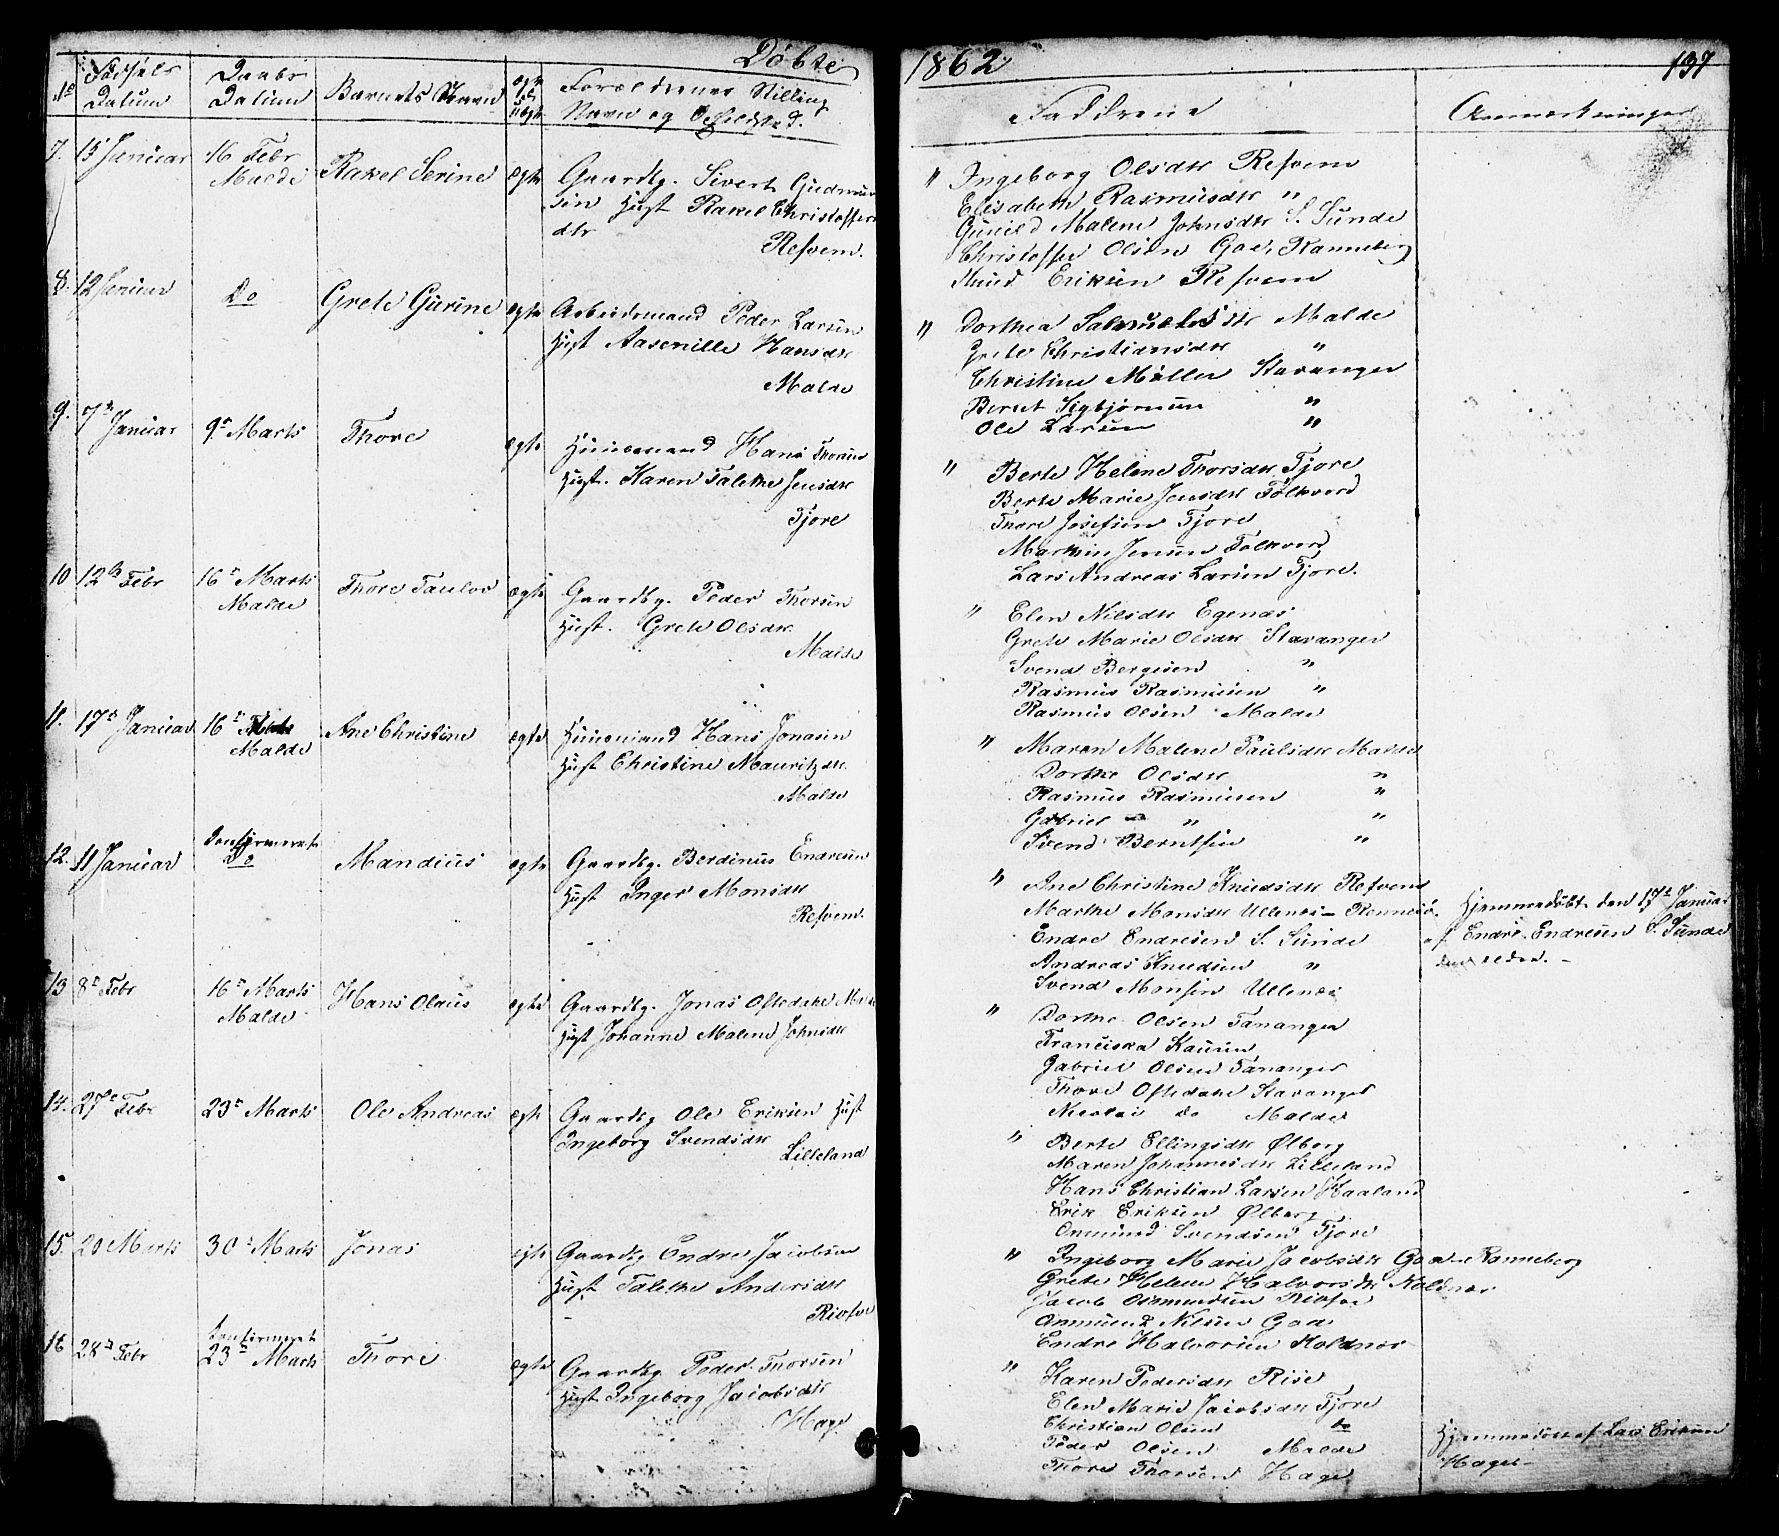 Døbte 1862 137
No Fødsels Datum Daabs Datum Barnets Navn Forældrenes Stilling
Navn og Opholdsted.
Faddrene Anmærkninger
7. 15 Januar 16 Febr Malde Rakel Serine ægte Gaardbg. Sivert Gudmun
sen Hust Rakel Christoffers
dtr
Refvem.
" Ingeborg Olsdtr Refvem
Elisabeth Rasmusdtr "
Gunild Malene Johnsdtr S. Sunde
Christoffer Olsen Goa, Ranneberg
Knud Eriksen Refvem
8. 12 Januar Do Grete Gurine ægte Arbeidsmand Peder Larsen
Hust Aasenille Hansdtr
Malde
" Dorthea Salmuelsdtr Malde
Grete Christiansdtr "
Christine Møller Stavanger
Bernt Sigbjørnsen "
Ole Larsen "
9. 7de Januar 9de Marts Thore ægte Huusmand Hans Thorsen
Hust. Karen Talethe Jensdtr
Tjore
" Berte Helene Thorsdtr Tjore
Berte Marie Jensdtr Folkvord
Thore Josefsen Tjore
Marthin Jensen Folkvord
Lars Andreas Larsen Tjore.
10 12te Febr 16de Marts Malde Thore Taulov ægte Gaardbg. Peder Thorsen
Hust. Grete Olsdtr
Malde
" Elen Nilsdtr Egenæs
Grete Marie Olsdtr Stavanger
Svend Bergesen "
Rasmus Rasmusen "
Rasmus Olsen Malde
11. 17de Januar 16de Malde Ane Christine ægte Huusmand Hans Jonasen
Hust Christine Mauritzdtr
Malde
" Maren Malene Paulsdtr Malde
Dorthe Olsdtr "
Rasmus Rasmusen "
Gabriel " "
Svend Berntsen "
12. 11 Januar Confirmeret Do Mandius ægte Gaardbg. Berdinus Endresen
Hust Inger Monsdtr
Refvem.
" Ane Christine Knudsdtr Refvem
Marthe Monsdtr Ullenæs Rennesø.
Endre Endresen S. Sunde
Andreas Knudsen "
Svend Monsen Ullenæs
Hjemmedøbt den 17de Januar
af Endre Endresen S. Sunde
13 8de Febr 16de Marts Malde Hans Olaus ægte Gaardbg. Jonas Oftedahl Malde
Hust Johanne Malene Johnsdtr
" Dorthe Olsen Tananger
Franciska
Gabriel Olsen Tananger
Thore Oftedahl Stavanger
Nicolai do Malde
14. 27de Febr 23de Marts Ole Andreas ægte Gaardbg Ole Eriksen Hust
Ingeborg Svendsdtr
Lilleland
" Berte Ellingsdtr Ølberg
Maren Johannesdtr Lilleland
Hans Christian Larsen Haaland
Erik Eriksen Ølberg
Svendsen Tjore
15. 20 Marts 30de Marts Jonas ægte Gaardbg Endre Jacobsen
Hust Talethe Andersdtr
" Ingeborg Marie Jacobsdtr Goa Ranneberg
Grete Helene Halvorsdtr Holdnæs
Jacob
Nilsen Goa
Endre Halvorsen Holdnæs
16 28de Febr Confirmeret 23de Marts Thore ægte Gaardbg Peder Thorsen
Hust Ingeborg Jacobsdtr
Hage
" Karen Pedersdtr Rise
Elen Marie Jacobsdtr Tjore
Christian Olsen do
Peder Olsen Malde
Thore Thorsen Hage
Hjemmedøbt af Lars Eriksen
Hage